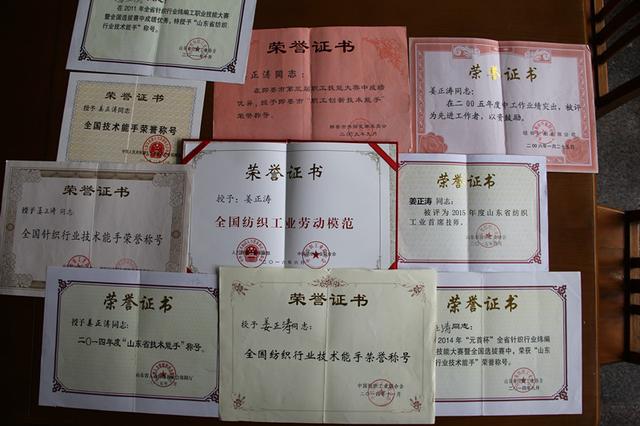 在2011年全省针织行业纬编工职业技能大赛
暨全国选拔赛中成绩优秀，特授予“山东省纺织
行业技术能手”称号。
荣誉证书
正涛同志：
在即墨市第五届职工技能大赛中成绩
优异，授予即墨市“职工创新技术能手”
荣誉称号。
二〇〇九年九月
荣誉证书
姜正涛同志：
在二00五年度中工作业绩突出，被评
为先进工作者，以资鼓励。
二00六年一月二十五日
荣誉证书
授予 姜正涛 同志
全国技术能手荣誉称号
荣誉证书
授予 姜正涛 同志
全国针织行业技术能手荣誉称号
荣誉证书
授予：姜正涛
全国纺织工业劳动模范
二〇一六年六月
荣誉证书
姜正涛 同志：
被评为2015年度山东省纺织
工业首席技师。
荣誉证书
授予姜正涛同志：
二〇一四年度“山东省技术能手”称号。
荣誉证书
授予 姜正涛同志：
全国纺织行业技术能手荣誉称号
中国纺织工业联合会
二〇一四年十一月
荣誉证书
正涛同志：
2014年“元首杯”全省针织行业纬编
技能大赛暨全国选拔赛中，荣获“山东
行业技术能手”荣誉称号。
二〇一四年九月